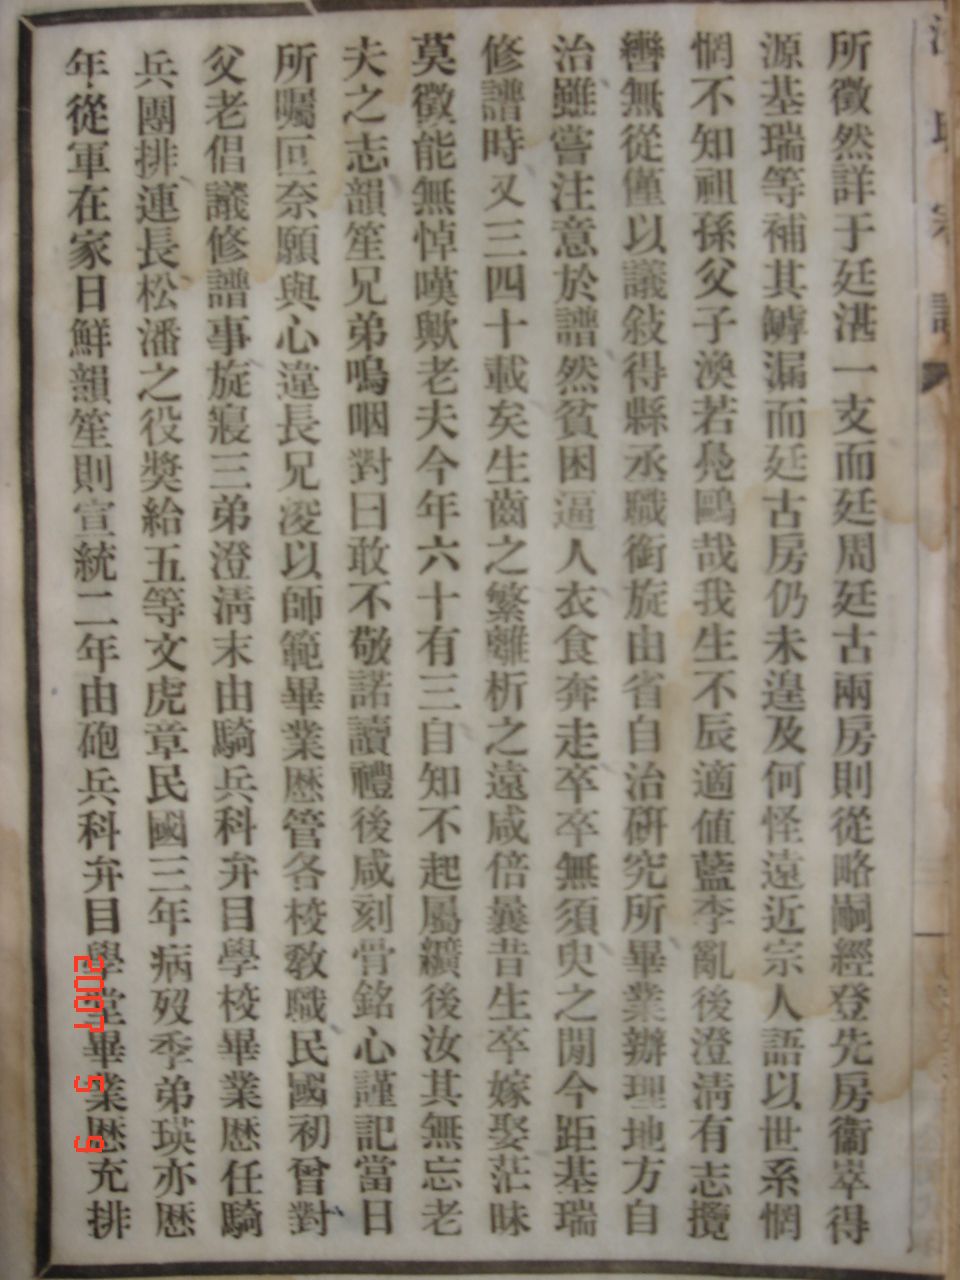 所徵然詳于廷湛一支而廷周廷古兩房則從略嗣經登先房衞崒得
源基瑞等補其罅漏而廷古房仍未遑及何怪遠近宗人語以世系惘
惘不知祖孫父子渙若鳧鷗哉我生不辰適值藍李亂後澄清有志攬
轡無從僅以議敍得縣丞職銜旋由省自治研究所畢業辦理地方自
治雖嘗注意於譜然貧困逼人衣食奔走卒卒無須臾之閒今距基瑞
修譜時又三四十載矣生齒之繁離析之遠咸倍曩昔生卒嫁娶茫昧
莫徵能無悼嘆歟老夫今年六十有三自知不起屬纊後汝其無忘老
夫之志韻笙兄弟嗚咽對曰敢不敬諾讀禮後咸刻骨銘心謹記當日
所囑叵奈願與心違長兄凌以師範畢業歷管各校敎職民國初曾對
父老倡議修譜事旋寢三弟澄清末由騎兵科弁目學校畢業歷任騎
兵團排連長松潘之役獎給五等文虎章民國三年病歿季弟瑛亦歷
年從軍在家日鮮韻笙則宣統二年由砲兵科弁目學堂畢業歷充排
宗譜
2007 5 9